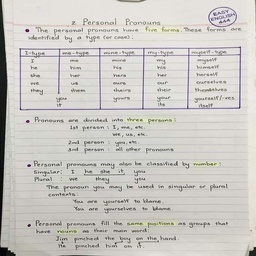 EASY
ENGLISH
444
2 Personal Pronouns
• The personal pronouns have five forms. These forms are
identified by a type (or case):
I-type me-type mine-type my-type myself-type
I me mine my myself
he him his his himself
she her hers her herself
we us ours our ourselves
they them theirs their themselves
you yours your yourself/-ves
it its itself
• Pronouns are divided into three persons:
1st person : I, me, etc.
we, us, etc.
2nd person : you, etc.
3rd person : all other pronouns
• Personal pronouns may also be classified by number:
Singular: I he she it you
Plural : we they you
The pronoun you may be used in singular or plural
contexts:
You are yourself to blame.
You are yourselves to blame.
• Personal pronouns fill the same positions as groups that
have nouns as their main word:
Jim pinched the boy on the hand.
He pinched him on it.